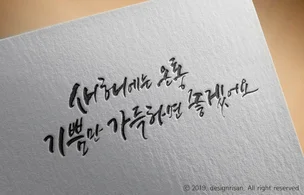 새해에는 온통
기쁨만 가득하면 좋겠어요
© 2019. designnisan. All right reserved